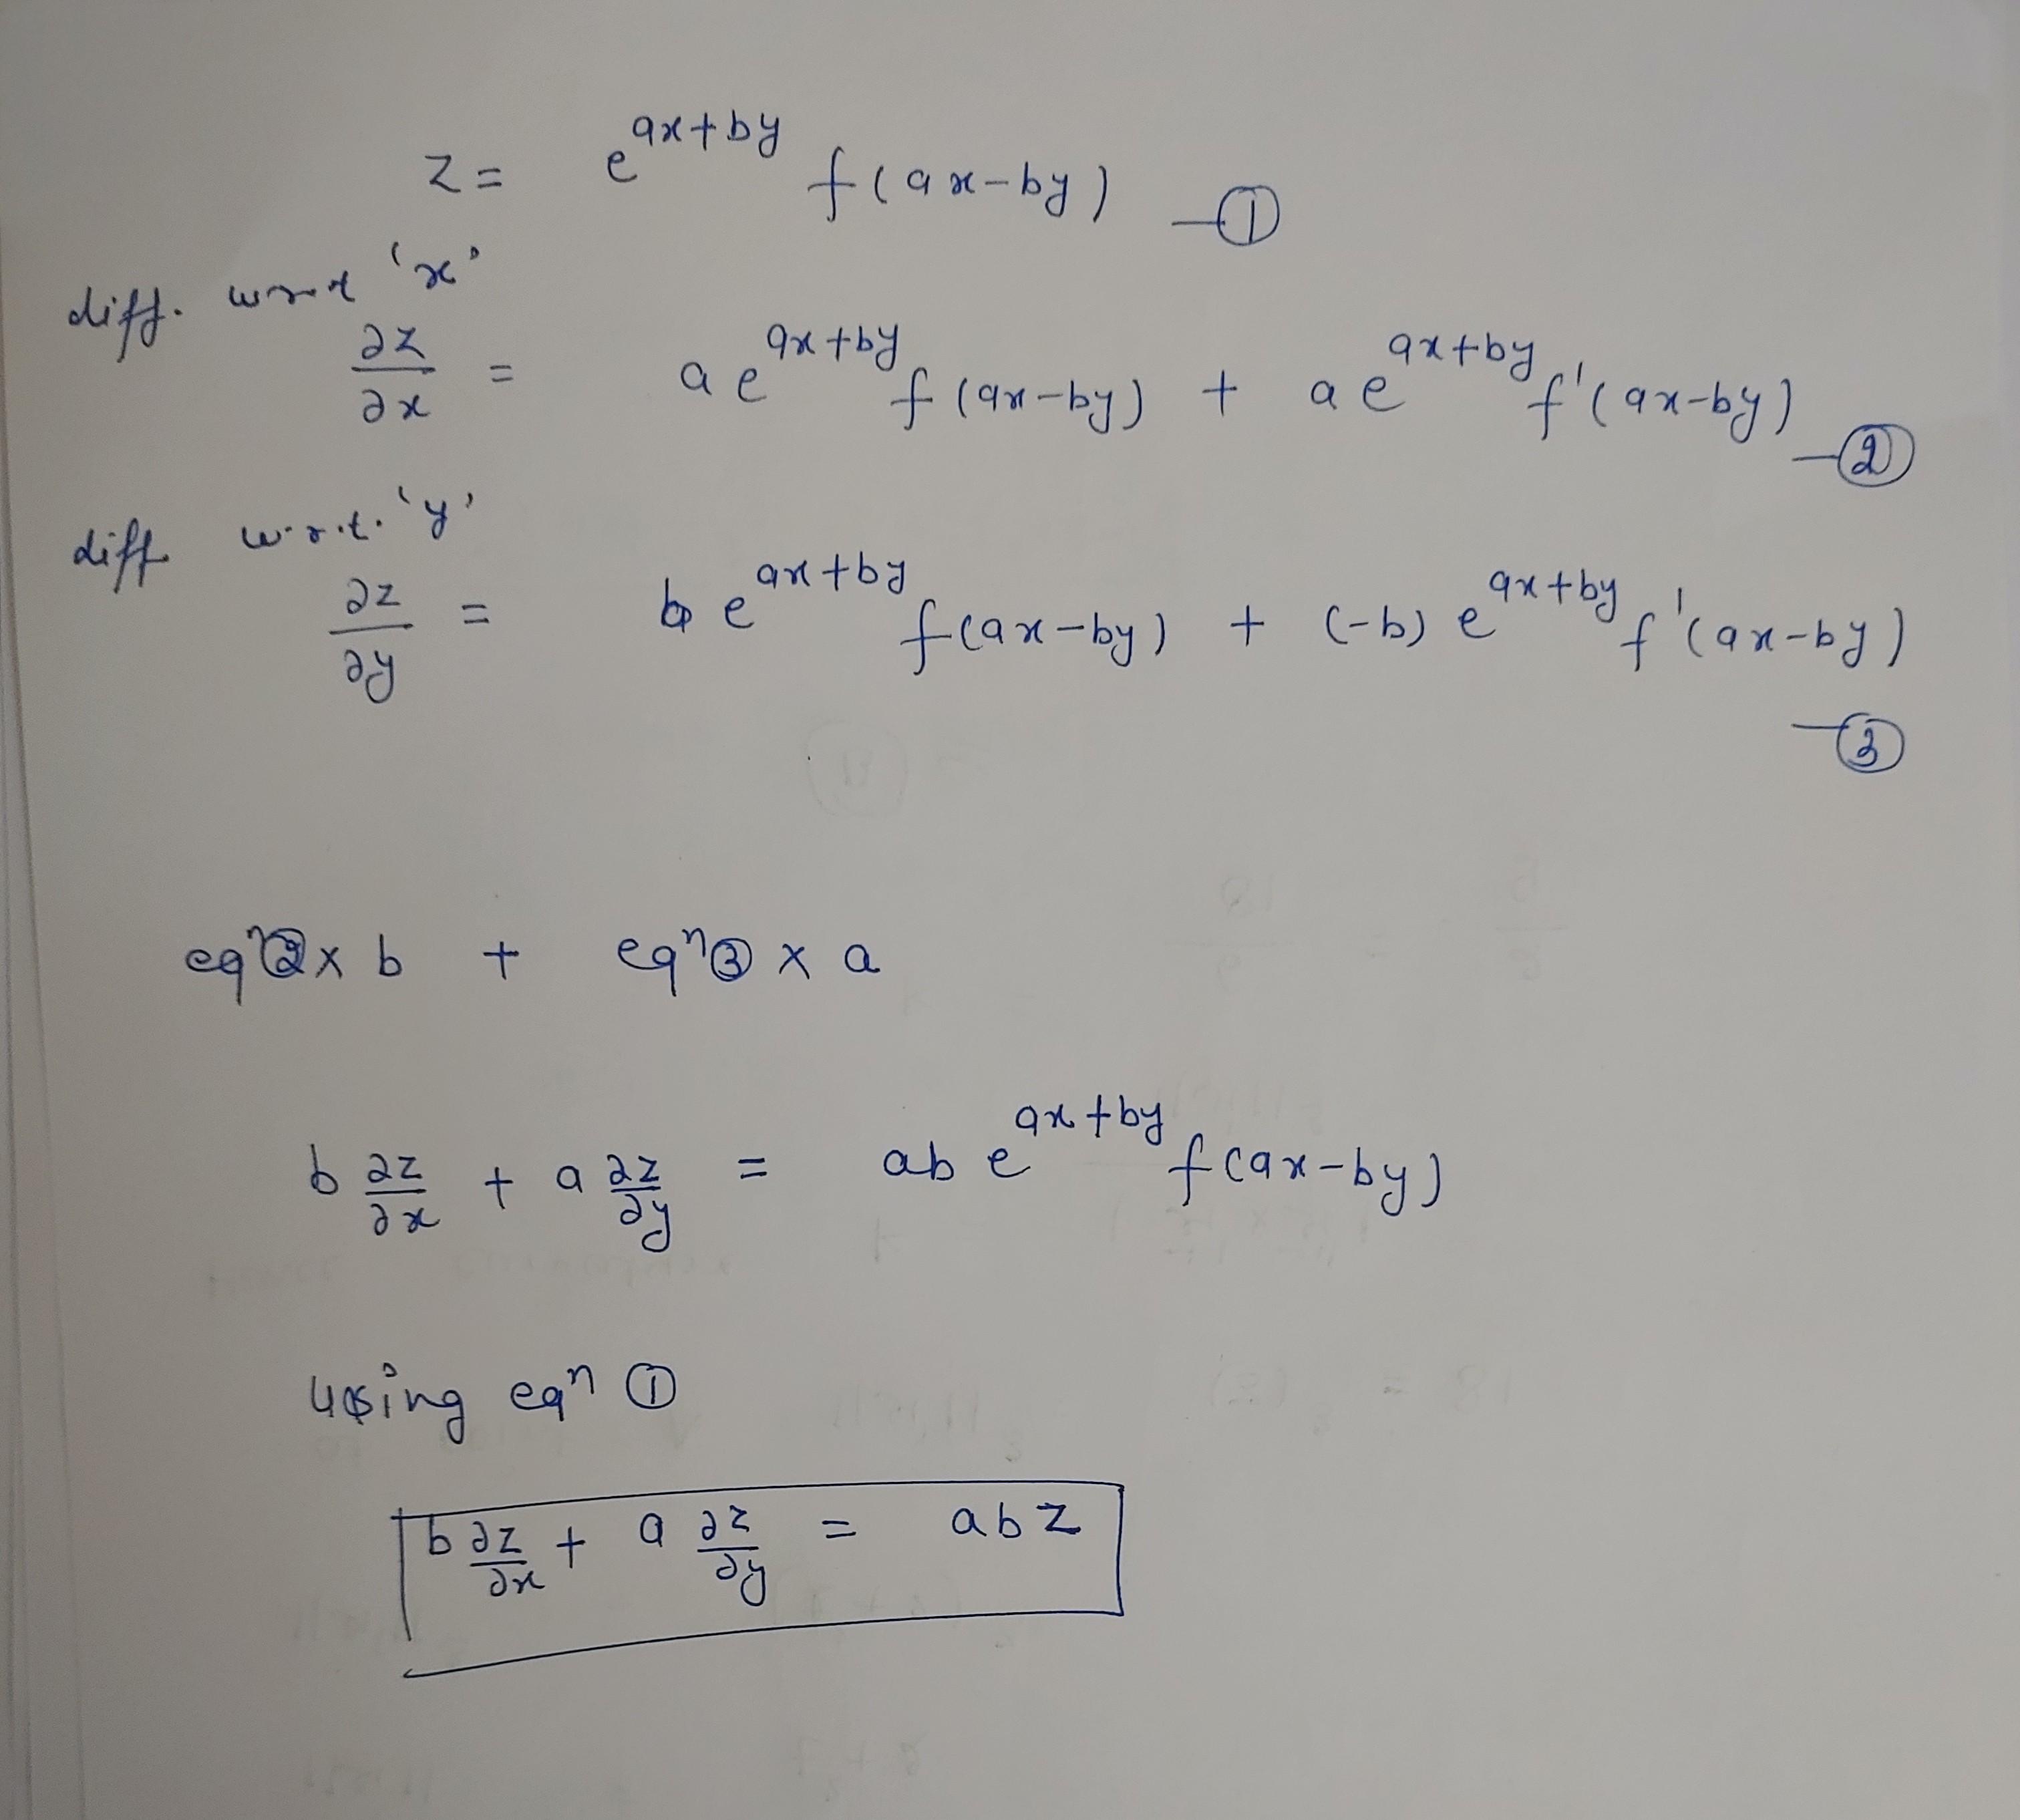 z = e^{ax+by} f(ax-by) —①
diff. w.r.t 'x'
∂z/∂x = a e^{ax+by} f(ax-by) + a e^{ax+by} f'(ax-by) —②
diff w.r.t. 'y'
∂z/∂y = b e^{ax+by} f(ax-by) + (-b) e^{ax+by} f'(ax-by)
—③
eqⁿ② x b + eqⁿ③ x a
b ∂z/∂x + a ∂z/∂y = ab e^{ax+by} f(ax-by)
using eqⁿ ①
b ∂z/∂x + a ∂z/∂y = abz